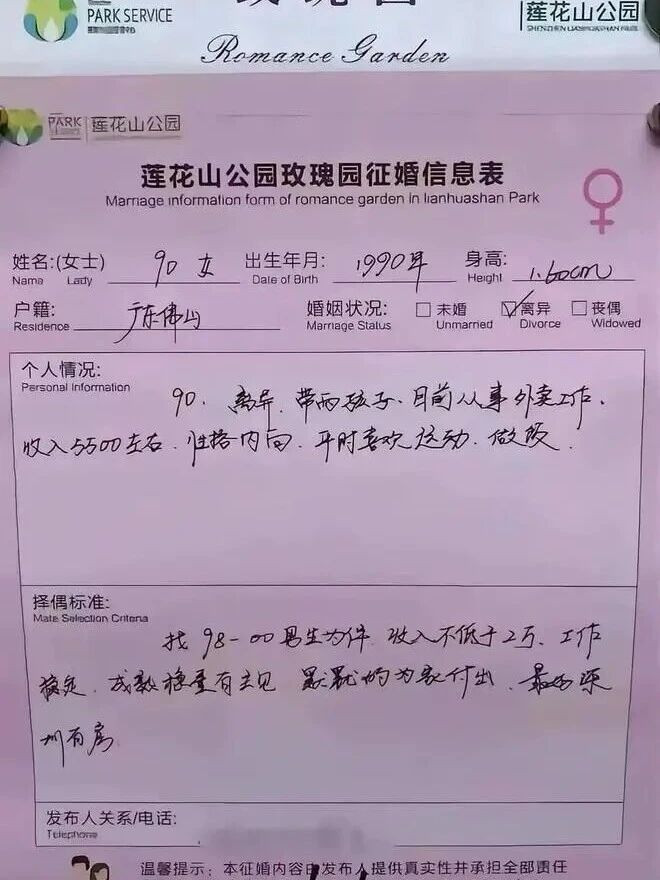 PARK SERVICE
莲花山公园
SHENZHEN LIANHUASHAN PARK
Romance Garden
PARK
莲花山公园
莲花山公园玫瑰园征婚信息表
Marriage information form of romance garden in lianhuashan Park
姓名:(女士) 90 女 出生年月: 1990年 身高: 1.60cm
Name Lady Date of Birth Height
户籍: 广东佛山 婚姻状况: 未婚 离异 丧偶
Residence Marriage Status Unmarried Divorce Widowed
个人情况:
Personal Information
90. 离异. 带两孩子. 目前从事外卖工作.
收入5500左右. 性格内向. 平时喜欢运动. 做饭.
择偶标准:
Mate Selection Criteria
找98-00男生为伴. 收入不低于2万. 工作
稳定. 成熟稳重有主见 默默的为家付出. 最好深
圳有房
发布人关系/电话:
Telephone
温馨提示: 本征婚内容由发布人提供真实性并承担全部责任